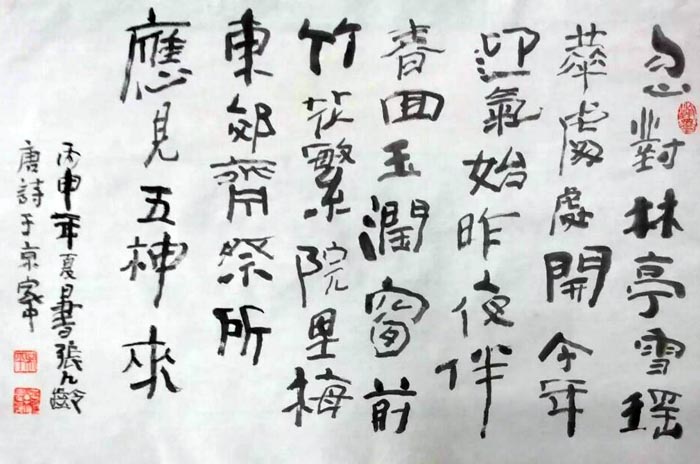 忽對林亭雪瑤
華處處開今年
迎氣始昨夜伴
春回玉潤窗前
竹花繁院里梅
東郊齊祭所
應見五神來
丙申年夏日書張九齡
唐詩于京